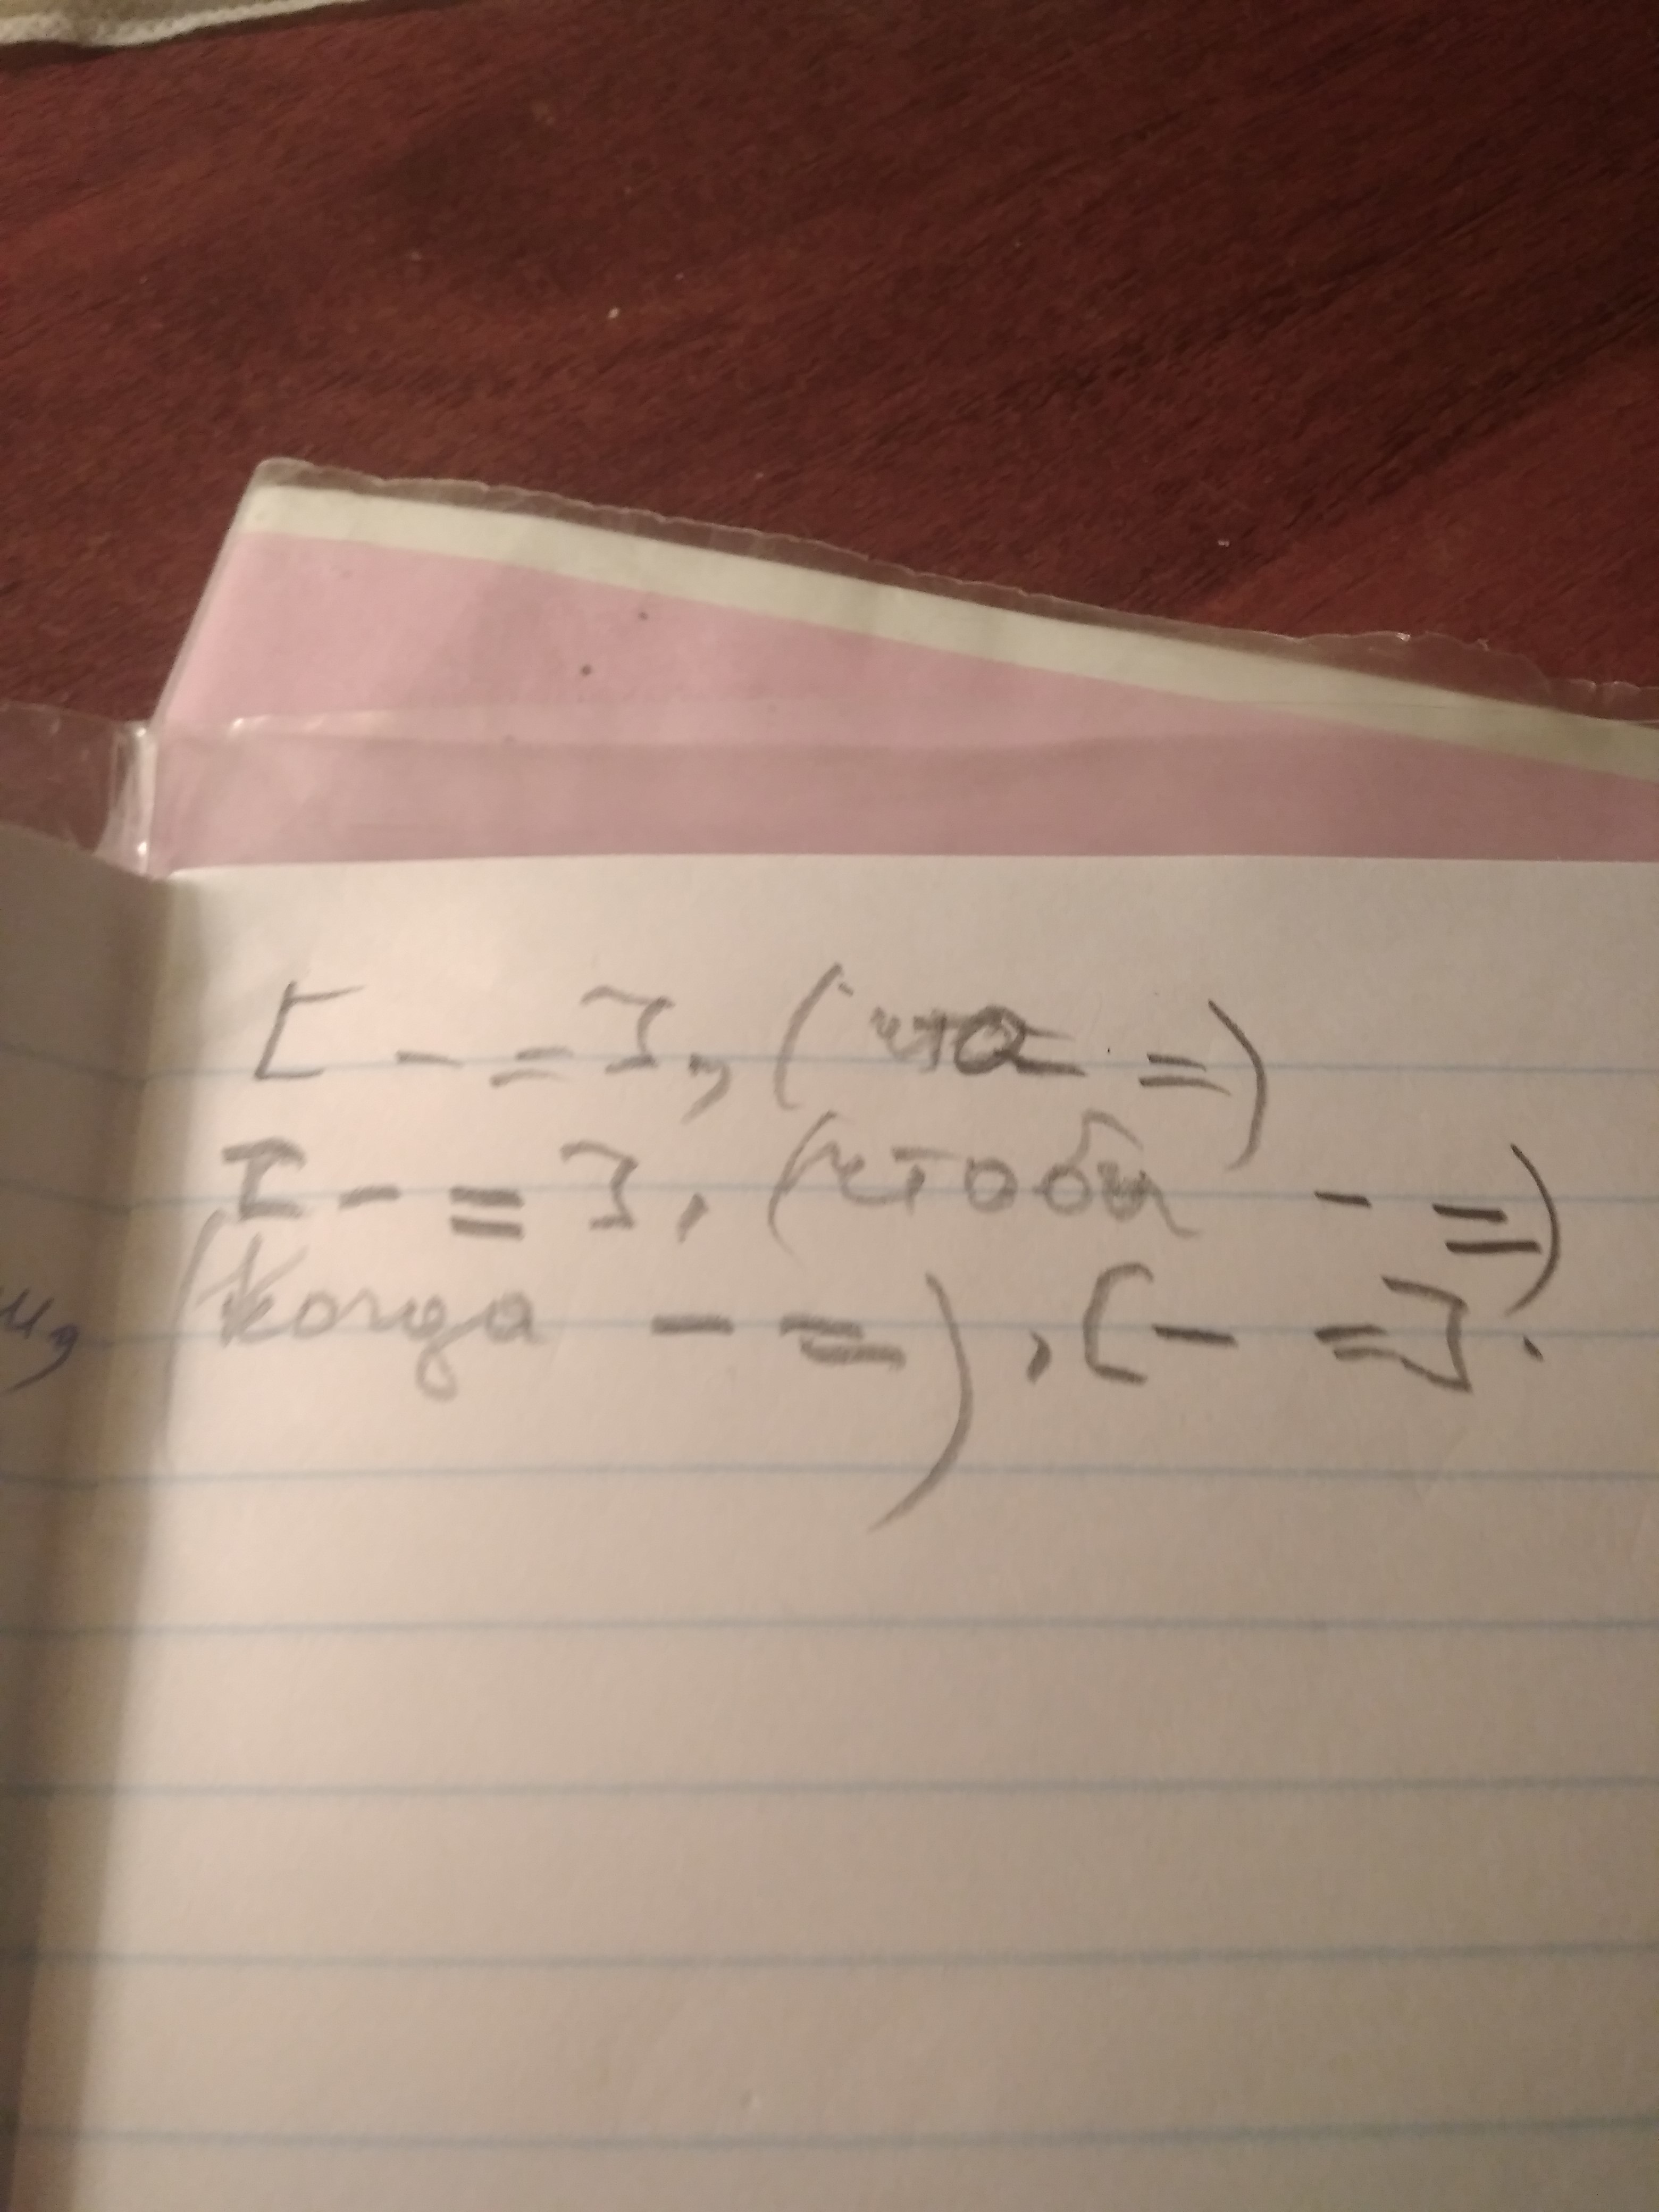 [ - = ], ( что = )
[ - = ], ( чтобы - = )
( когда - = ), [ - = ].